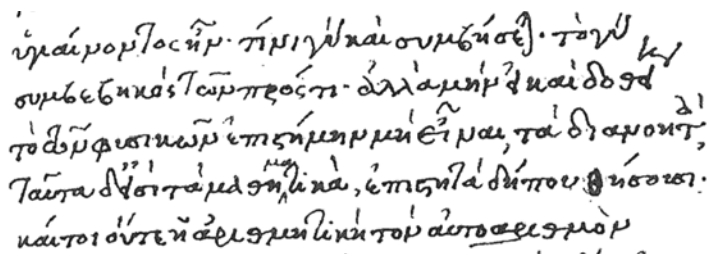 ὑγιαίνοντος ἦν· τίνι γὰρ καὶ συμβήσεται· τὸ γὰρ
συμβεβηκὸς τῶν πρός τι· ἀλλὰ μὴν καὶ
τὸ τῶν φυσικῶν ἐπιστήμην μὴ εἶναι, τὰ διανοητὰ,
ταῦτα δ' ἐστὶ τὰ μαθηματικὰ, ἐπιστητὰ δήπου θήσουσι·
καίτοι οὔτε ἡ ἀριθμητικὴ τὸν αὐτοαριθμὸν